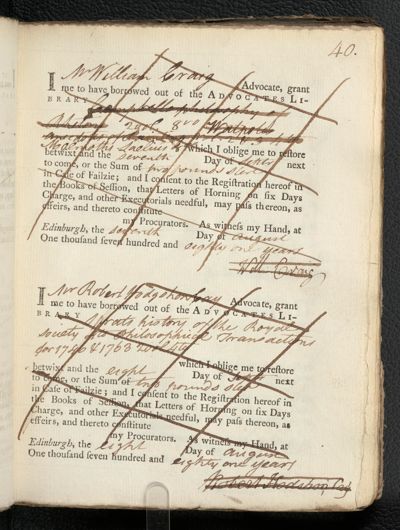 40.
I Mr William Craig Advocate, grant
me to have borrowed out of the ADVOCATES LI-
BRARY Campbells
2 8vo Walpole
Lælius & which I oblige me to restore
betwixt and the seventh Day of next
to come, or the Sum of two pounds ster
in Case of Failzie; and I consent to the Registration hereof in
the Books of Session, that Letters of Horning on six Days
Charge, and other Executorials needful, may pass thereon, as
effeirs, and thereto constitute
my Procurators. As witness my Hand, at
Edinburgh, the seventh Day of august
One thousand seven hundred and eighty one years
Will. Craig
I Mr Robert Hodgshon Cay Advocate, grant
me to have borrowed out of the ADVOCATES LI-
BRARY Sprats history of the Royal
society & the Philosophical Transactions
for 1746 & 1763
which I oblige me to restore
betwixt and the eight Day of next
to come, or the Sum of two pounds ster
in Case of Failzie; and I consent to the Registration hereof in
the Books of Session, that Letters of Horning on six Days
Charge, and other Executorials needful, may pass thereon, as
effeirs, and thereto constitute
my Procurators. As witness my Hand, at
Edinburgh, the eight Day of august
One thousand seven hundred and eighty one years
Robert Hodshon Cay